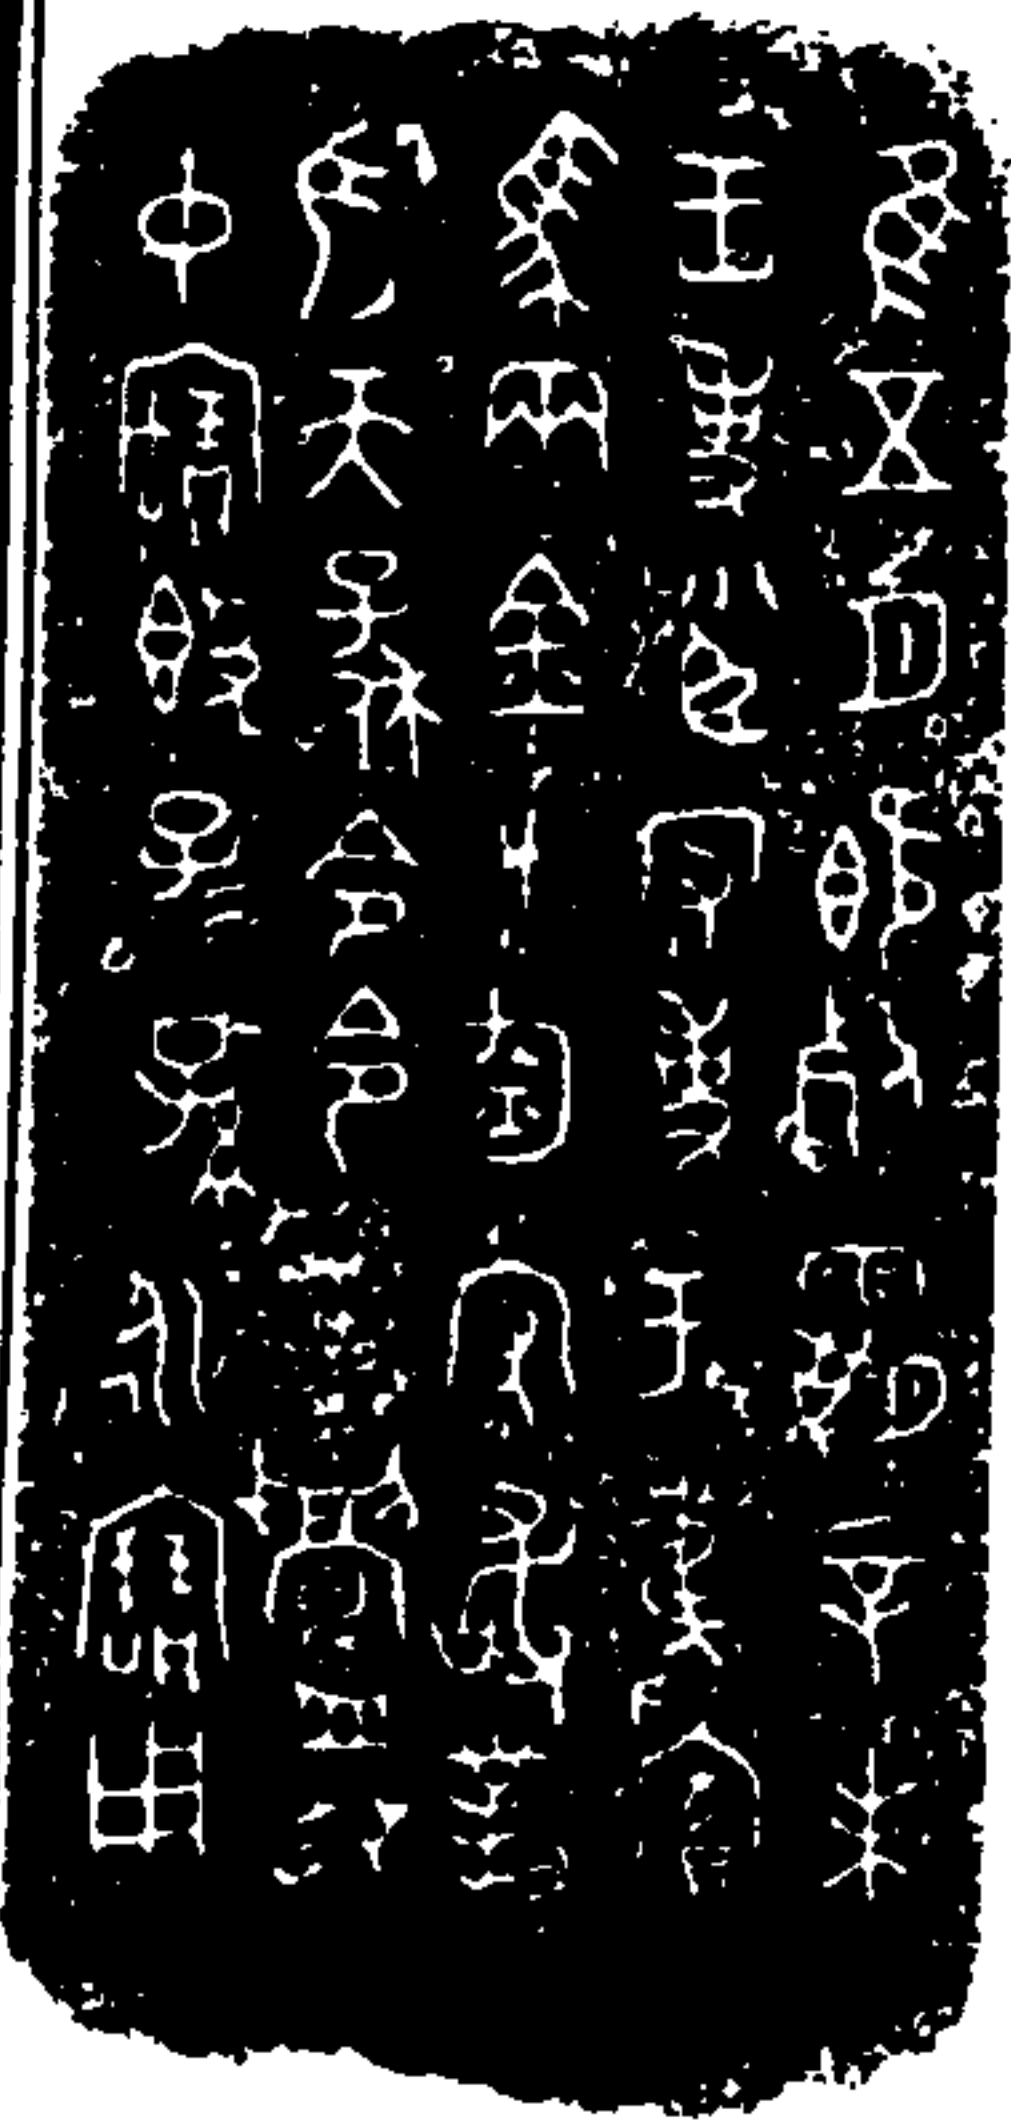 隹五月既死霸辛未
王事小臣守事于夷賓
馬兩金十鈞守敢對
揚天子休令令鑄引
中寶𣪘子=孫永寶用